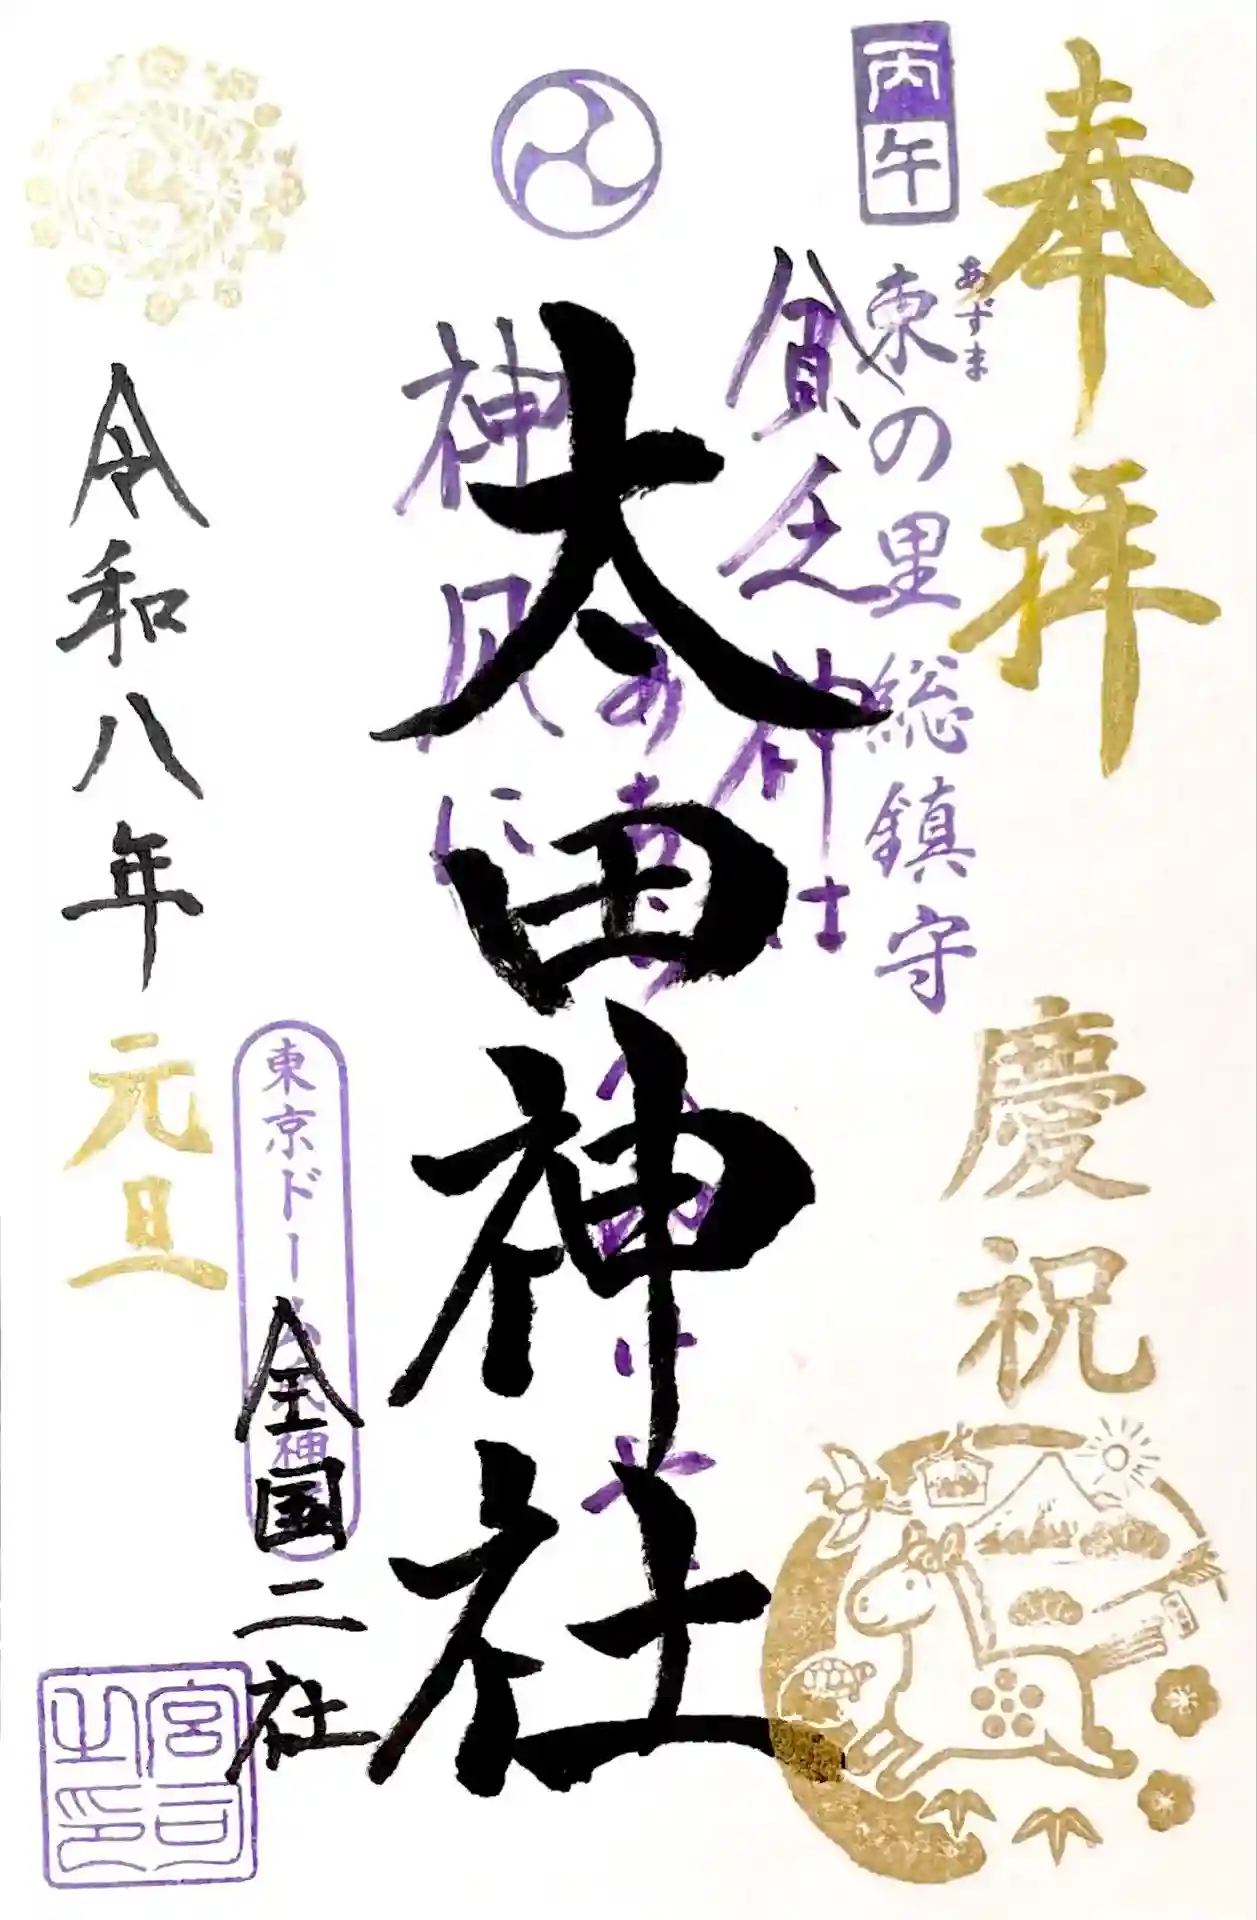 奉拝
慶祝
丙午
あずま
東の里総鎮守
貧乏神は
太田神社
神
に
東京ドーム
全国二社
令和八年
元旦
宮司之印